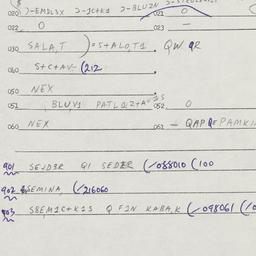 020 J-EMDL3X J-1C+K1 J-BLUZN 021 0
022 0 023 -
030 SALA,T )=S+ALOT1. QW QR
040 S+C+A+- (212
050 NEX
051 BLUV1 PATLQ12+A= 052 0
060 NEX 061 - QAP QF PAMKI
901 SEJD3R Q1 SEDER (-088010 (100
902 SEMINA, (-216060
903 SBEM1C+K1S Q F2N KABA,K (-098061